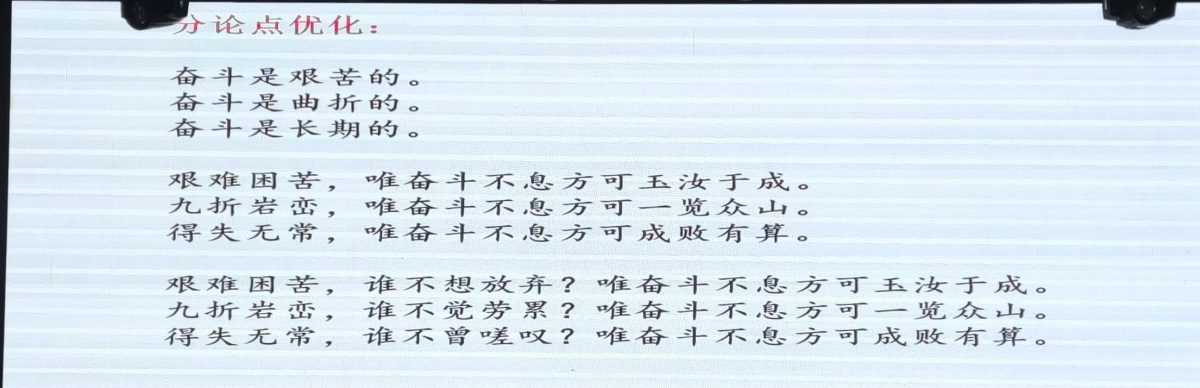 分论点优化：
奋斗是艰苦的。
奋斗是曲折的。
奋斗是长期的。
艰难困苦，唯奋斗不息方可玉汝于成。
九折岩峦，唯奋斗不息方可一览众山。
得失无常，唯奋斗不息方可成败有算。
艰难困苦，谁不想放弃？唯奋斗不息方可玉汝于成。
九折岩峦，谁不觉劳累？唯奋斗不息方可一览众山。
得失无常，谁不曾嗟叹？唯奋斗不息方可成败有算。